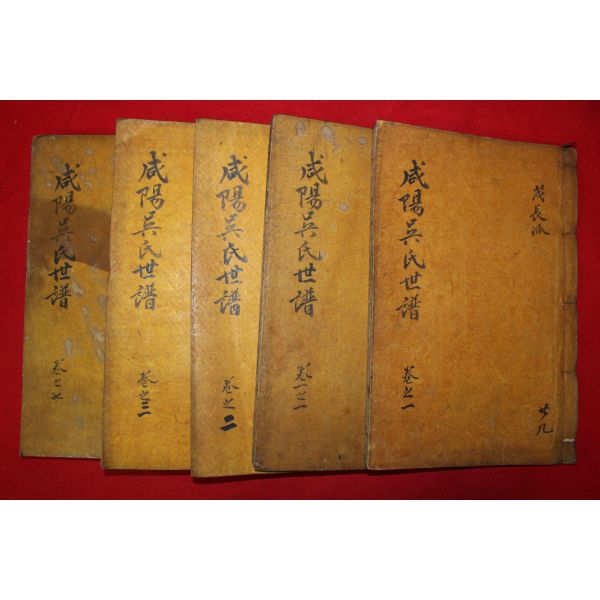 咸陽吳氏世譜
茂長派
卷之一
廿九
咸陽吳氏世譜
卷一之一
咸陽吳氏世譜
卷之二
咸陽吳氏世譜
卷之三
咸陽吳氏世譜
卷之七